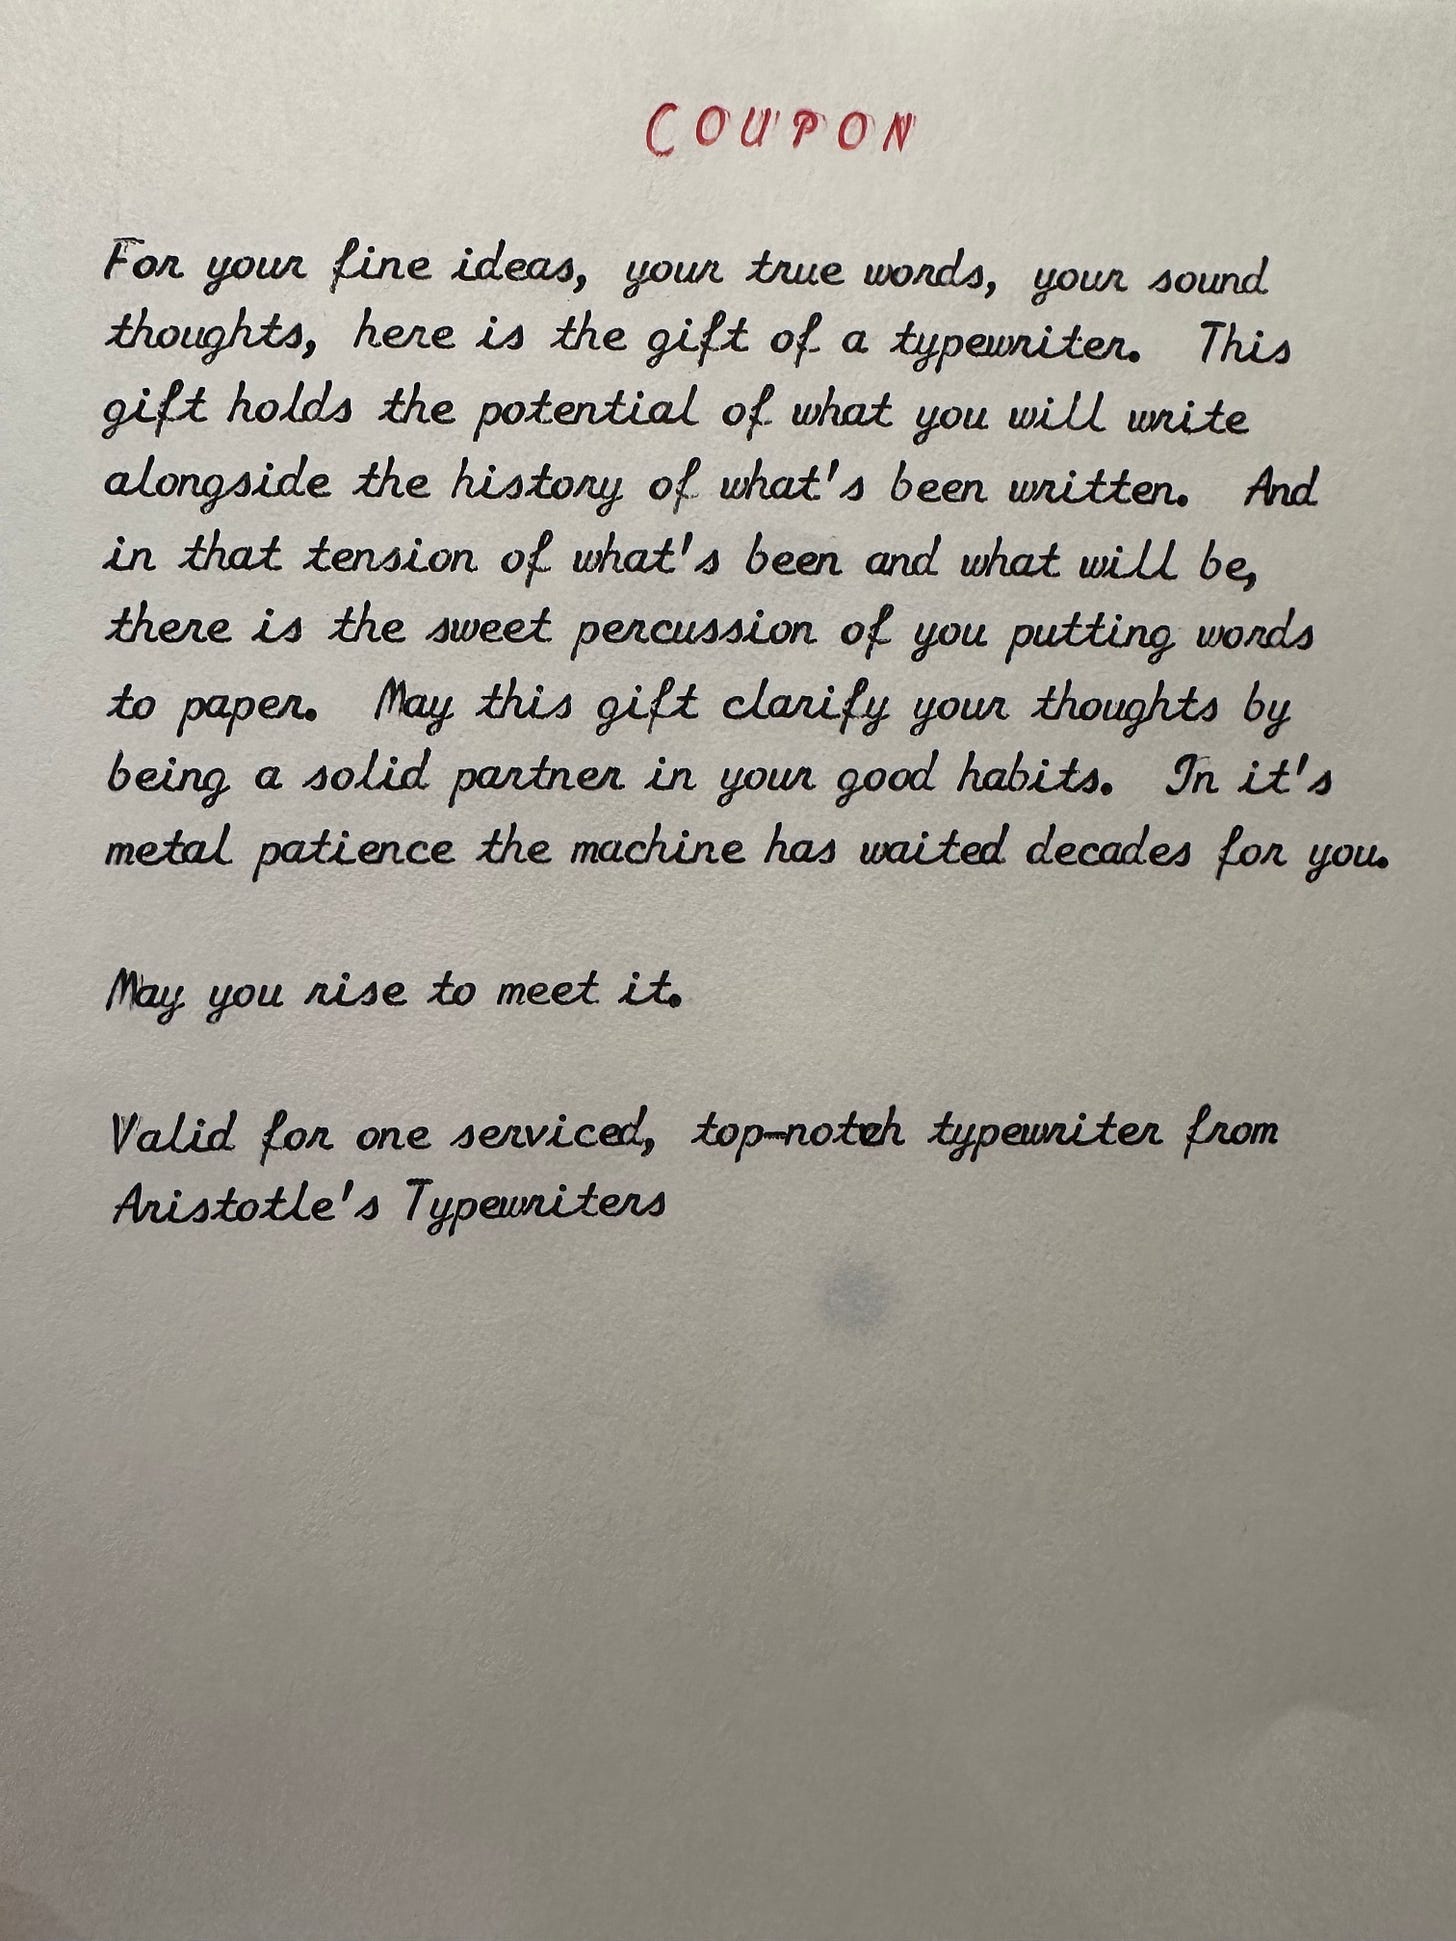 COUPON
For your fine ideas, your true words, your sound
thoughts, here is the gift of a typewriter. This
gift holds the potential of what you will write
alongside the history of what's been written. And
in that tension of what's been and what will be,
there is the sweet percussion of you putting words
to paper. May this gift clarify your thoughts by
being a solid partner in your good habits. In it's
metal patience the machine has waited decades for you.
May you rise to meet it.
Valid for one serviced, top-notch typewriter from
Aristotle's Typewriters